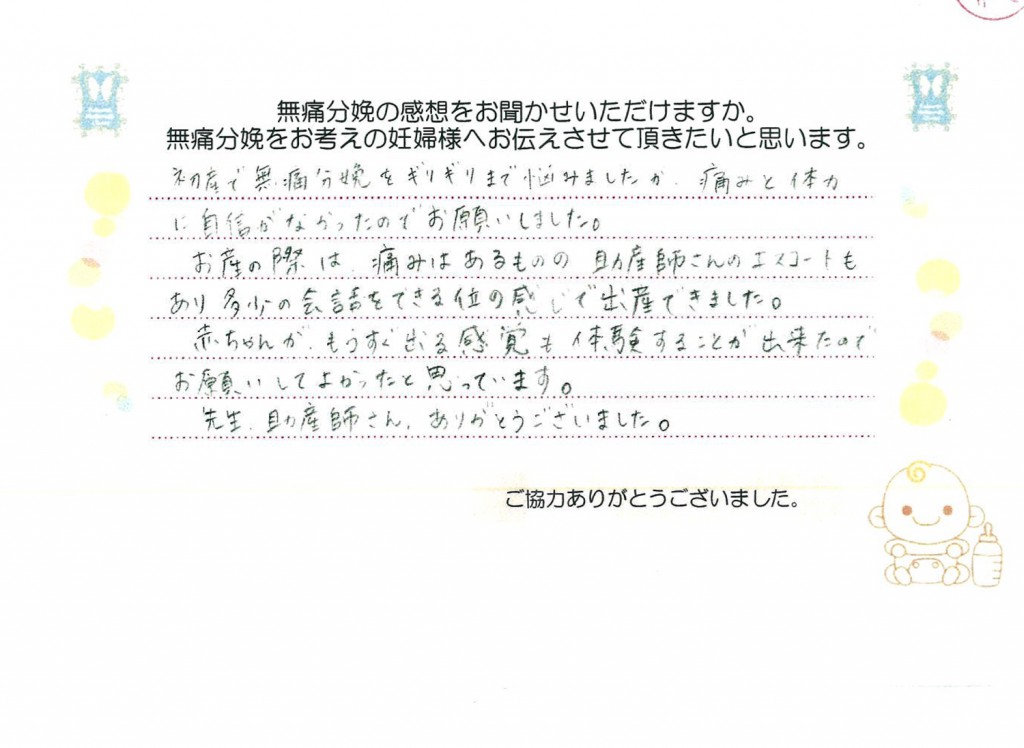 無痛分娩の感想をお聞かせいただけますか。
無痛分娩をお考えの妊婦様へお伝えさせて頂きたいと思います。
初産で無痛分娩をギリギリまで悩みましたが、痛みと体力
に自信がなかったのでお願いしました。
お産の際は、痛みはあるものの助産師さんのエスコートも
あり多少の会話をできる位の感じで出産できました。
赤ちゃんが、もうすぐ出る感覚も体験することが出来たので
お願いしてよかったと思っています。
先生、助産師さん、ありがとうございました。
ご協力ありがとうございました。